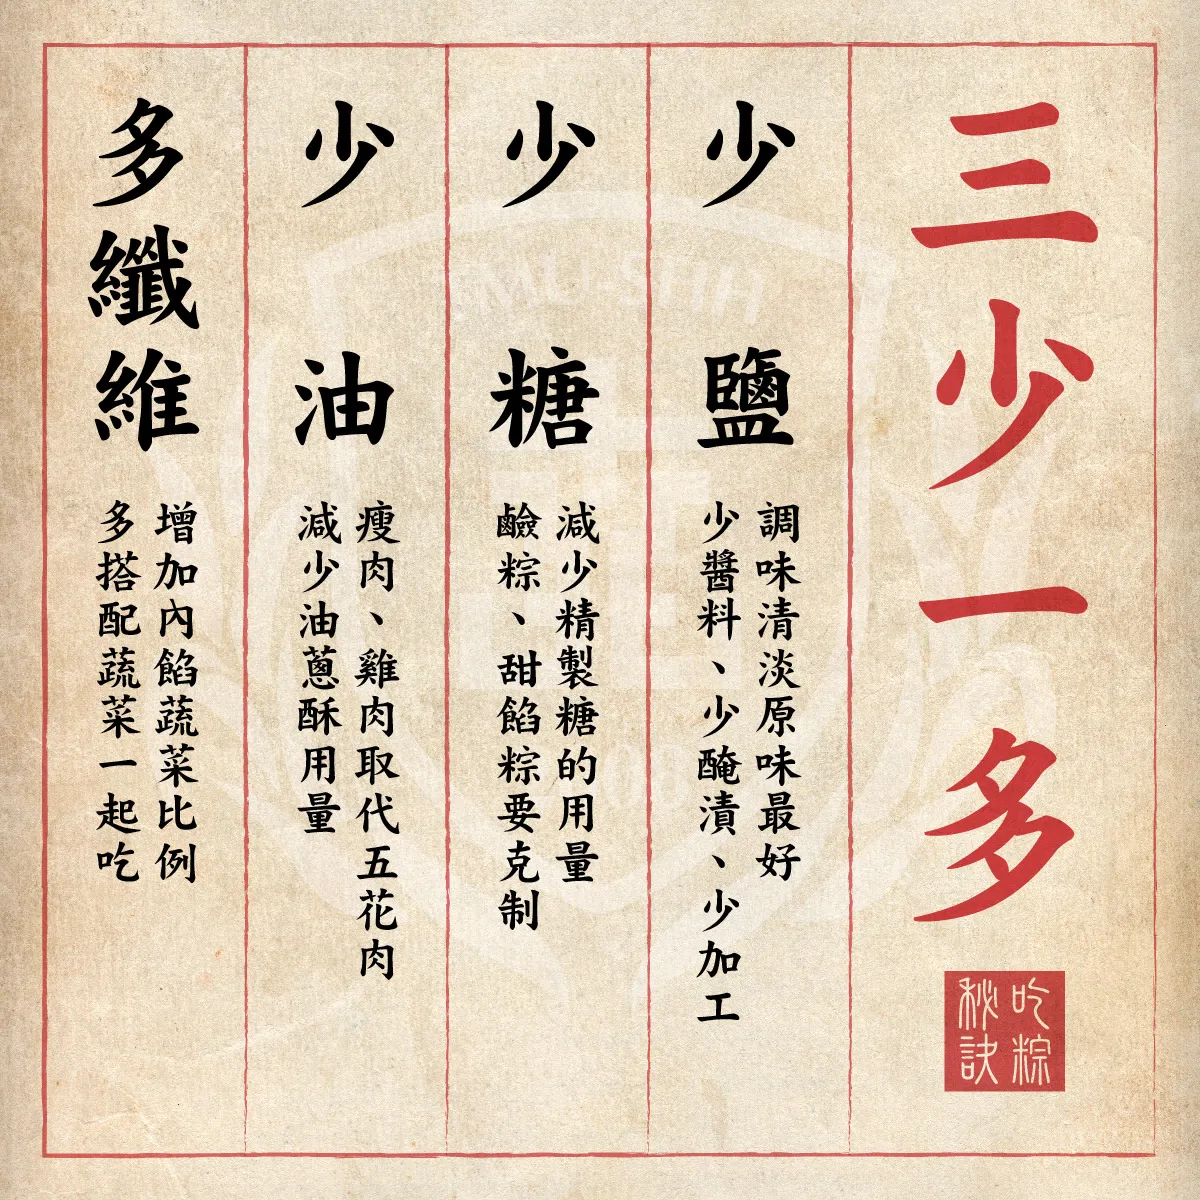 三少一多
吃粽
秘訣
少鹽
調味清淡原味最好
少醬料、少醃漬、少加工
少糖
減少精製糖的用量
鹼粽、甜餡粽要克制
少油
瘦肉、雞肉取代五花肉
減少油蔥酥用量
多纖維
增加內餡蔬菜比例
多搭配蔬菜一起吃